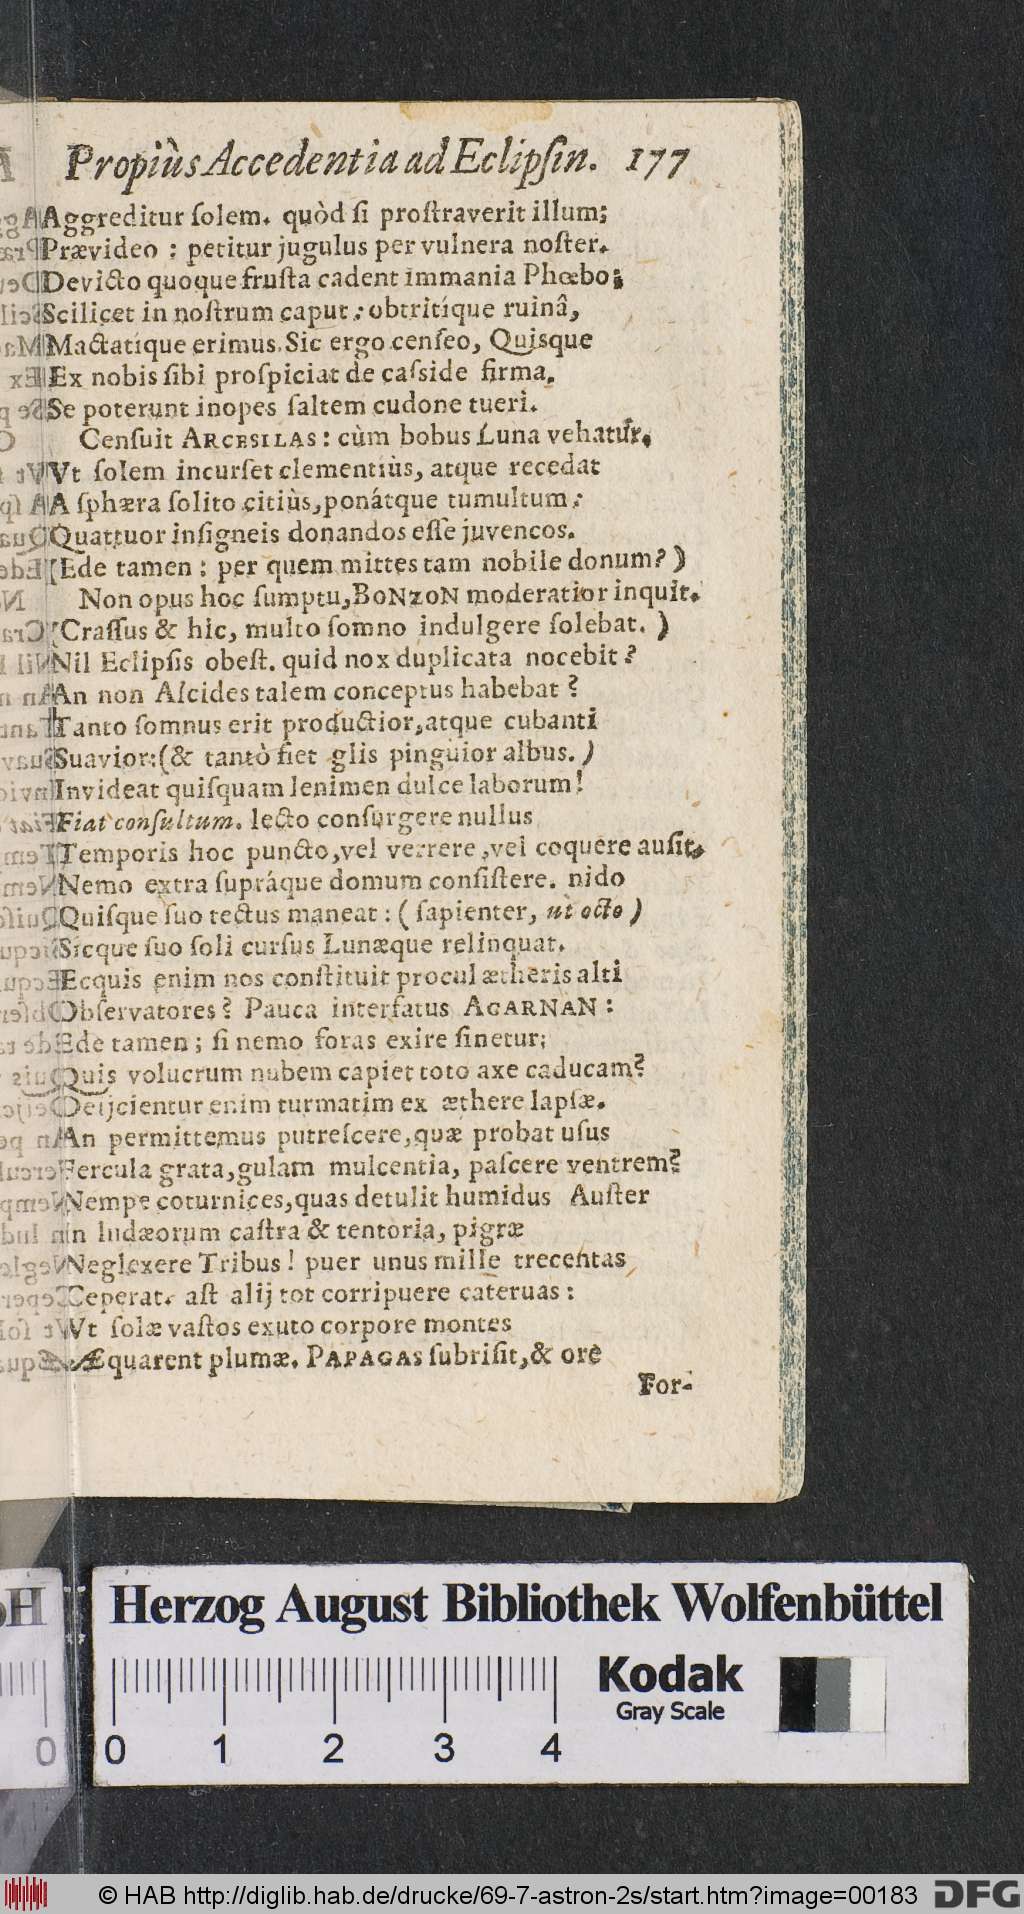 Propiùs Accedentia ad Eclipſin. 177
Aggreditur ſolem. quòd ſi proſtraverit illum;
Prævideo : petitur jugulus per vulnera noſter.
Devicto quoque fruſta cadent immania Phœbo;
Scilicet in noſtrum caput : obtritíque ruinâ,
Mactatíque erimus. Sic ergo cenſeo, Quisque
Ex nobis ſibi proſpiciat de caſside firma.
Se poterunt inopes ſaltem cudone tueri.
Cenſuit ARCESILAS : cùm bobus Luna vehatur,
Vt ſolem incurſet clementiùs, atque recedat
A ſphæra ſolito citiùs, ponátque tumultum :
Quattuor inſigneis donandos eſſe juvencos.
(Ede tamen : per quem mittes tam nobile donum?)
Non opus hoc ſumptu, BONZON moderatior inquit.
(Craſſus & hic, multo ſomno indulgere ſolebat.)
Nil Eclipſis obeſt. quid nox duplicata nocebit?
An non Alcides talem conceptus habebat?
Tanto ſomnus erit productior, atque cubanti
Suavior: (& tantò fiet glis pinguior albus.)
Invideat quiſquam lenimen dulce laborum!
Fiat conſultum. lecto conſurgere nullus
Temporis hoc puncto, vel verrere, vel coquere auſit,
Nemo extra ſupráque domum conſiſtere. nido
Quiſque ſuo tectus maneat : (ſapienter, ut octo)
Sicque ſuo ſoli curſus Lunæque relinquat.
Ecquis enim nos conſtituit procul ætheris alti
Obſervatores? Pauca interfatus ACARNAN :
Ede tamen ; ſi nemo foras exire ſinetur;
Quis volucrum nubem capiet toto axe caducam?
Deijcientur enim turmatim ex æthere lapſæ.
An permittemus putreſcere, quæ probat uſus
Fercula grata, gulam mulcentia, paſcere ventrem?
Nempe coturnices, quas detulit humidus Auſter
In Iudæorum caſtra & tentoria, pigræ
Neglexere Tribus! puer unus mille trecentas
Ceperat. aſt alij tot corripuere cateruas :
Vt ſolæ vaſtos exuto corpore montes
Æquarent plumæ. PAPAGAS ſubriſit, & ore
For-
Herzog August Bibliothek Wolfenbüttel
Kodak
Gray Scale
0 0 1 2 3 4
© HAB http://diglib.hab.de/drucke/69-7-astron-2s/start.htm?image=00183 DFG